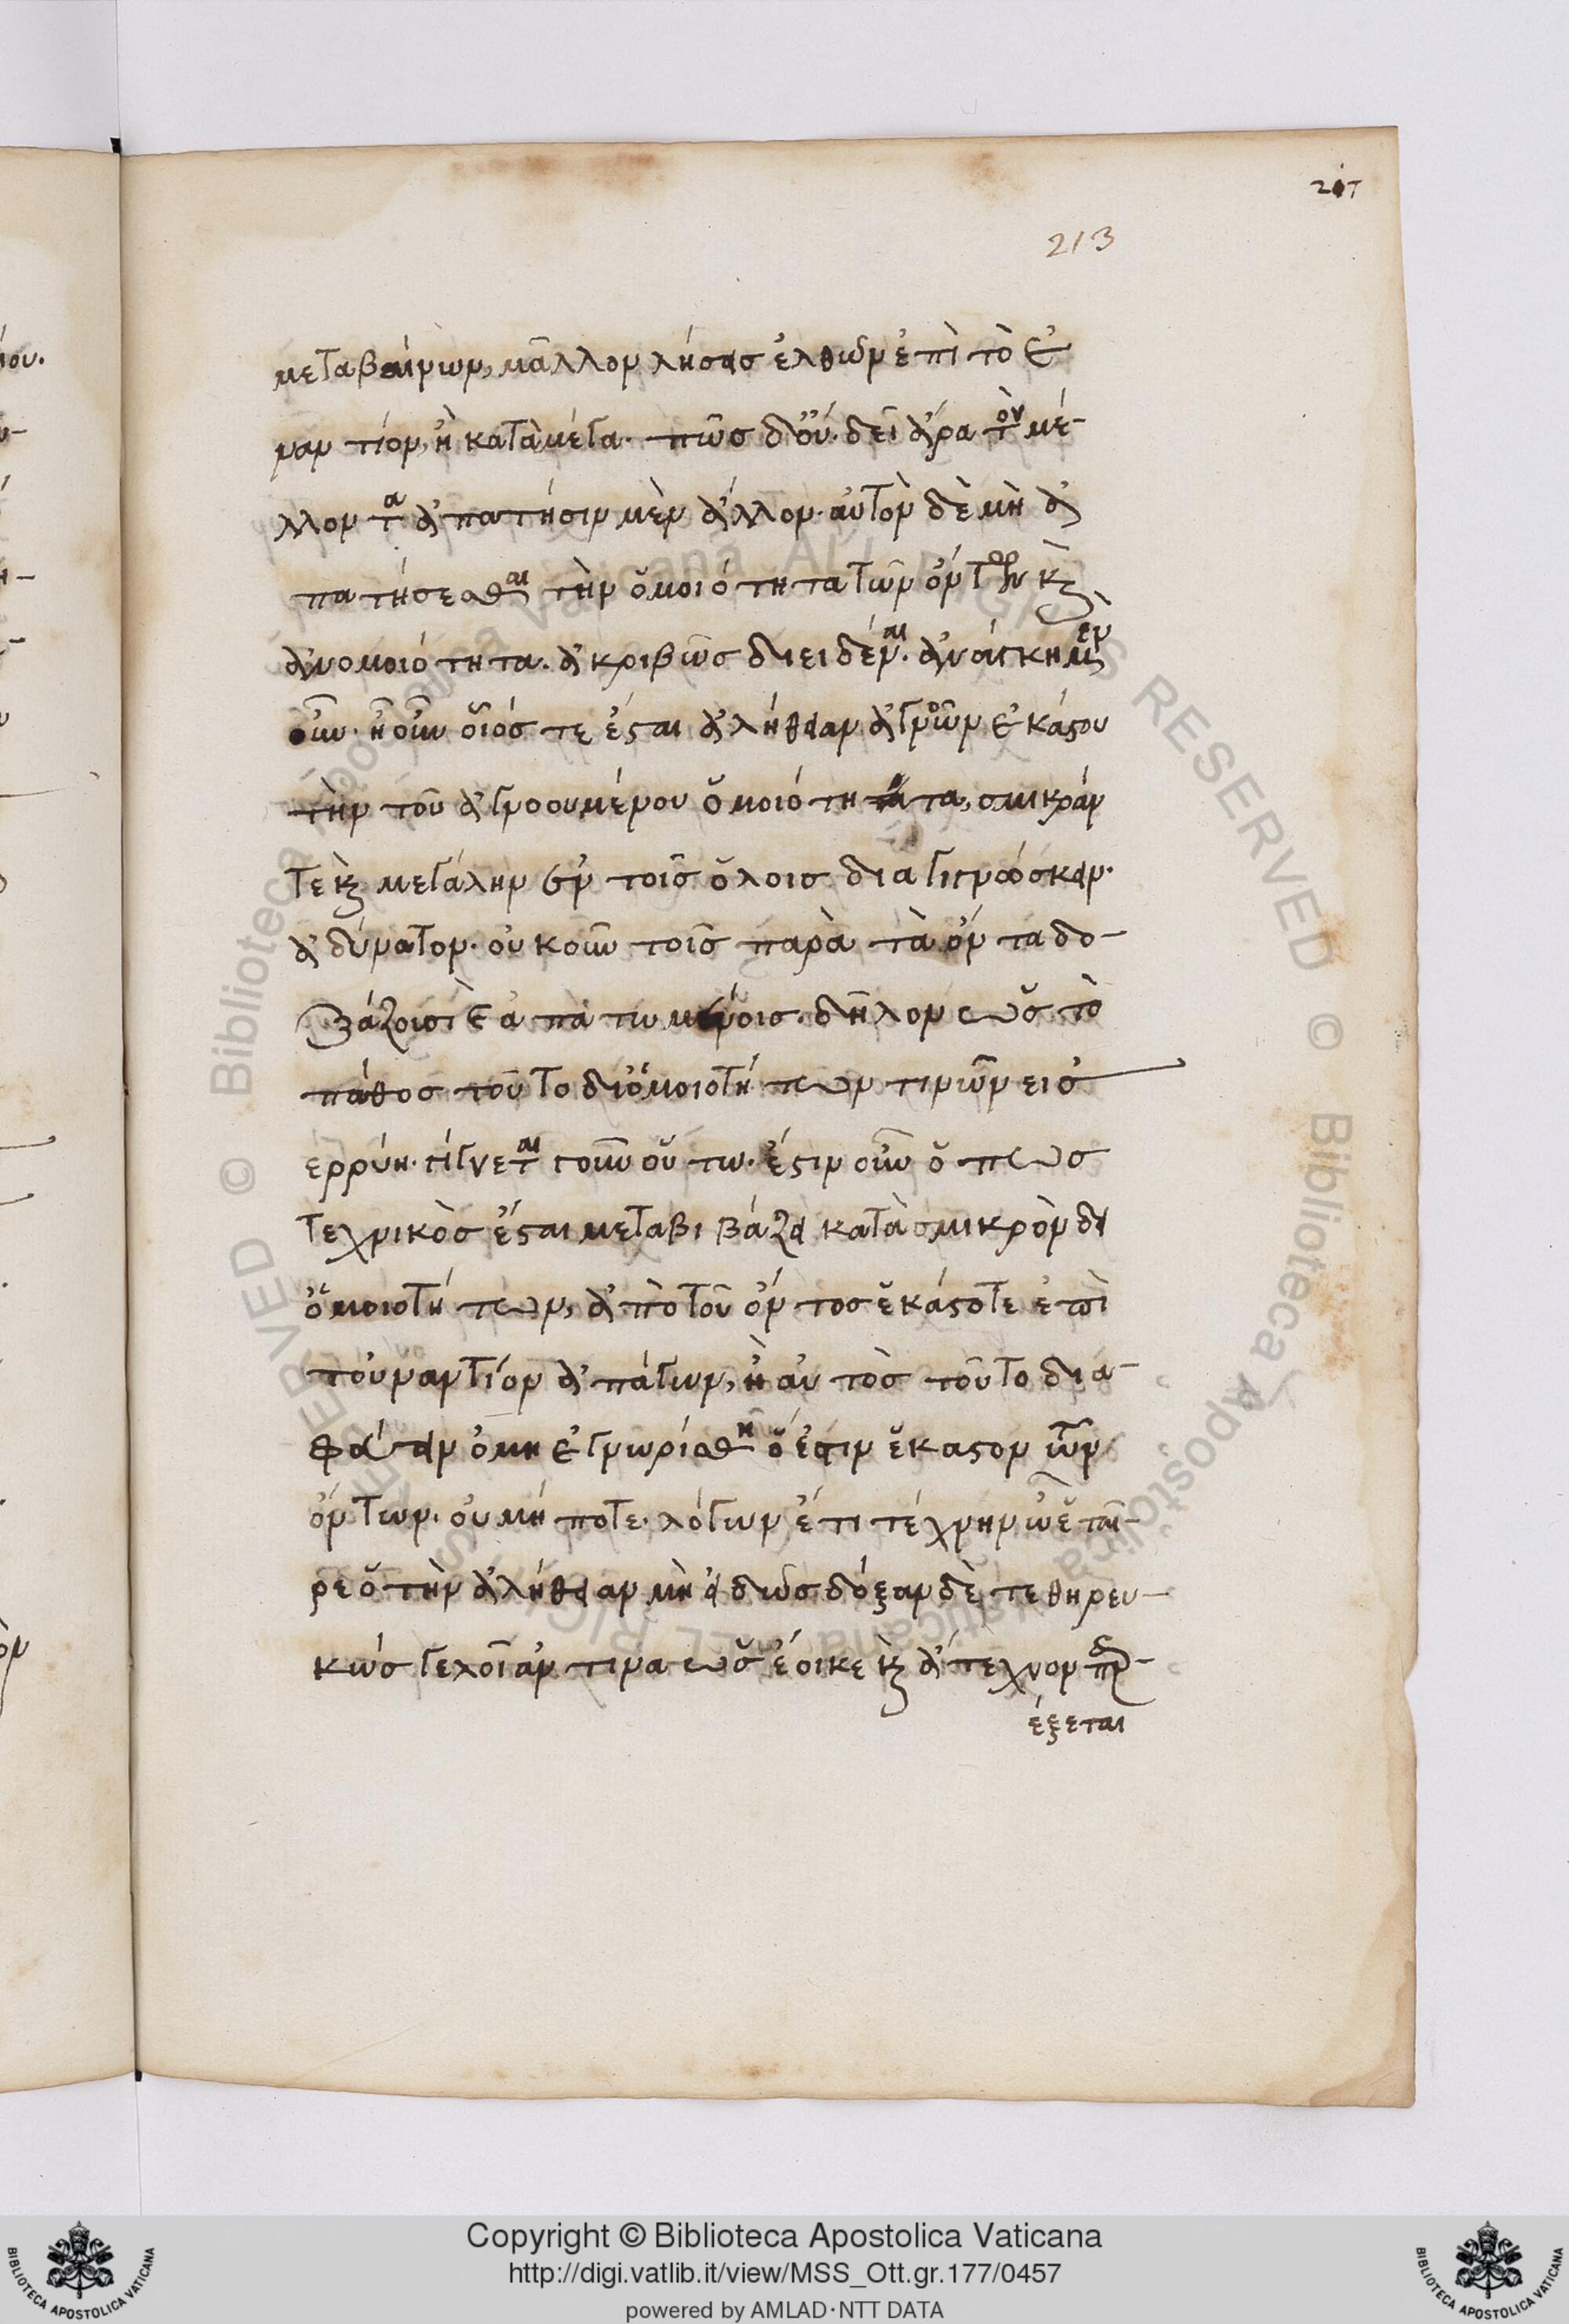 2 i T
213
μεταβαίνων, μᾶλλον λήσεις ἐλθὼν ἐπὶ τὸ ἐ
ναντίον, ἢ κατὰ μέγα. πῶς δ' οὔ. δεῖ ἄρα τὸν μέ-
λλοντα ἀπατήσειν μὲν ἄλλον. αὐτὸν δὲ μὴ ἀ
πατήσεσθαι τὴν ὁμοιότητα τῶν ὄντων καὶ
ἀνομοιότητα. ἀκριβῶς διειδέναι. ἀνάγκη μὲν
οὖν. ἦ οὖν οἷός τε ἔσται ἀλήθειαν ἀγνοῶν ἑκάστου
τὴν τοῦ ἀγνοουμένου ὁμοιότητα, σμικράν
τε καὶ μεγάλην ἐν τοῖς ὅλοις διαγιγνώσκειν.
ἀδύνατον. οὐκοῦν τοῖς παρὰ τὰ ὄντα δο-
ξάζουσι καὶ ἀπατωμένοις. δῆλον ὡς τὸ
πάθος τοῦτο δι' ὁμοιοτήτων τινῶν εἰσ
ερρύη. γίγνεται γοῦν οὕτω. ἔστιν οὖν ὅπως
τεχνικὸς ἔσται μεταβιβάζει κατὰ σμικρὸν δι
ὁμοιοτήτων, ἀπὸ τοῦ ὄντος ἑκάστοτε ἐπὶ
τοὐναντίον ἀπάγων, ἢ αὐτὸς τοῦτο δια-
φεύγειν ὁ μὴ ἐγνωρίσθη ὃ ἔστιν ἕκαστον τῶν
ὄντων. οὐ μήποτε. λόγων ἔτι τέχνην ὦ ἑταῖ-
ρε ὁ τὴν ἀλήθειαν μὴ εἰδὼς δόξαν δὲ τεθηρευ-
κὼς γελοίαν τινα ὡς ἔοικε καὶ ἄτεχνον παρ-
έξεται
Copyright © Biblioteca Apostolica Vaticana
http://digi.vatlib.it/view/MSS_Ott.gr.177/0457
powered by AMLAD·NTT DATA
BIBLIOTECA APOSTOLICA VATICANA
BIBLIOTECA APOSTOLICA VATICANA